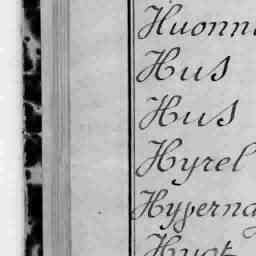 Huonn
Hus
Hus
Hyrel
Hyperna
Hyot